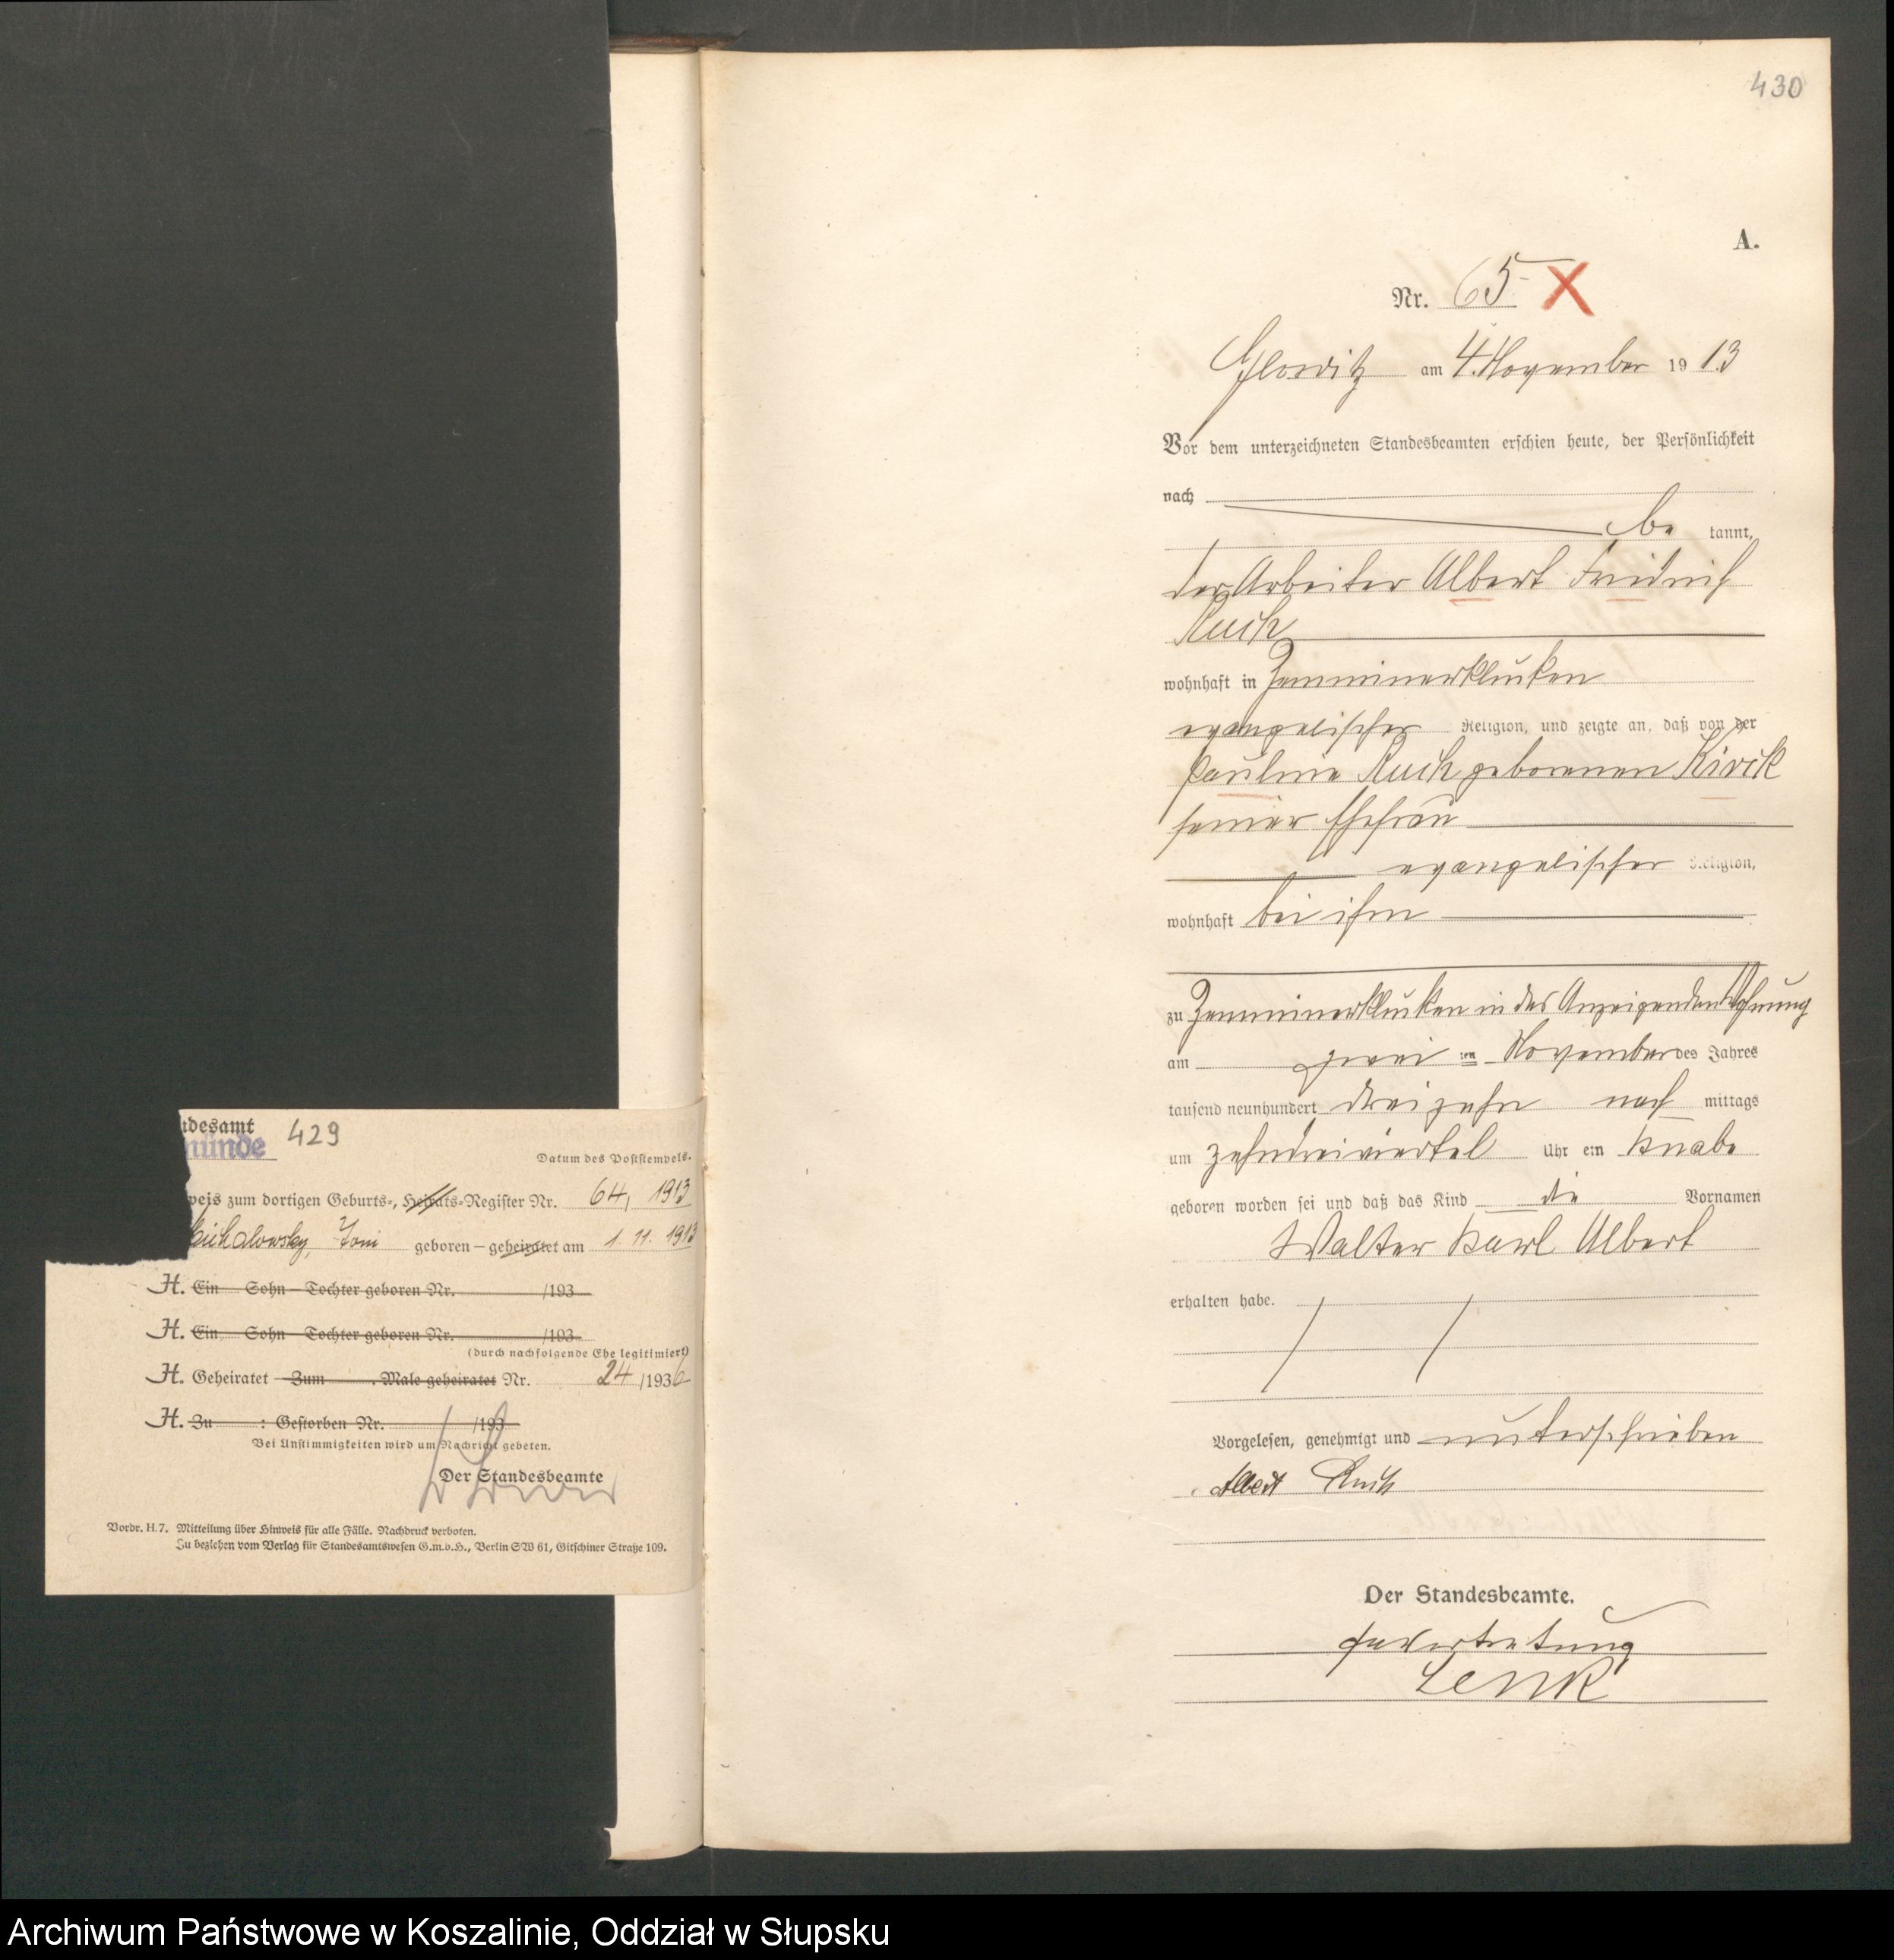 430
A.
Nr. 65
Glowitz am 4. November 1913
Vor dem unterzeichneten Standesbeamten erschien heute, der Persönlichkeit
nach
be kannt,
der Arbeiter Albert Friedrich
Kuck
wohnhaft in Zemminerklucken
evangelischer Religion, und zeigte an, daß von der
Pauline Kuck geborenen Kirck
seiner Ehefrau
evangelischer Religion,
wohnhaft bei ihm
zu Zemminerklucken in des Anzeigenden Wohnung
am zwei ten November des Jahres
tausend neunhundert dreizehn nach mittags
um zehndreiviertel Uhr ein Knabe
geboren worden sei und daß das Kind die Vornamen
Walter Karl Albert
erhalten habe.
Vorgelesen, genehmigt und unterschrieben
Albert Kuck
Der Standesbeamte.
In Vertretung
Lenk
ndesamt 429
münde
Datum des Poststempels.
weis zum dortigen Geburts-, Heirats-Register Nr. 64, 1913
geboren – geheiratet am 1. 11. 1913
H. Ein Sohn – Tochter geboren Nr. /193
H. Ein Sohn – Tochter geboren Nr. /193
(durch nachfolgende Ehe legitimiert)
H. Geheiratet – Zum . Male geheiratet Nr. 24 /1936
H. Zu : Gestorben Nr. /193
Bei Unstimmigkeiten wird um Nachricht gebeten.
Der Standesbeamte
Vordr. H. 7. Mitteilung über Hinweis für alle Fälle. Nachdruck verboten.
Zu beziehen vom Verlag für Standesamtswesen G.m.b.H., Berlin SW 61, Gitschiner Straße 109.
Archiwum Państwowe w Koszalinie, Oddział w Słupsku